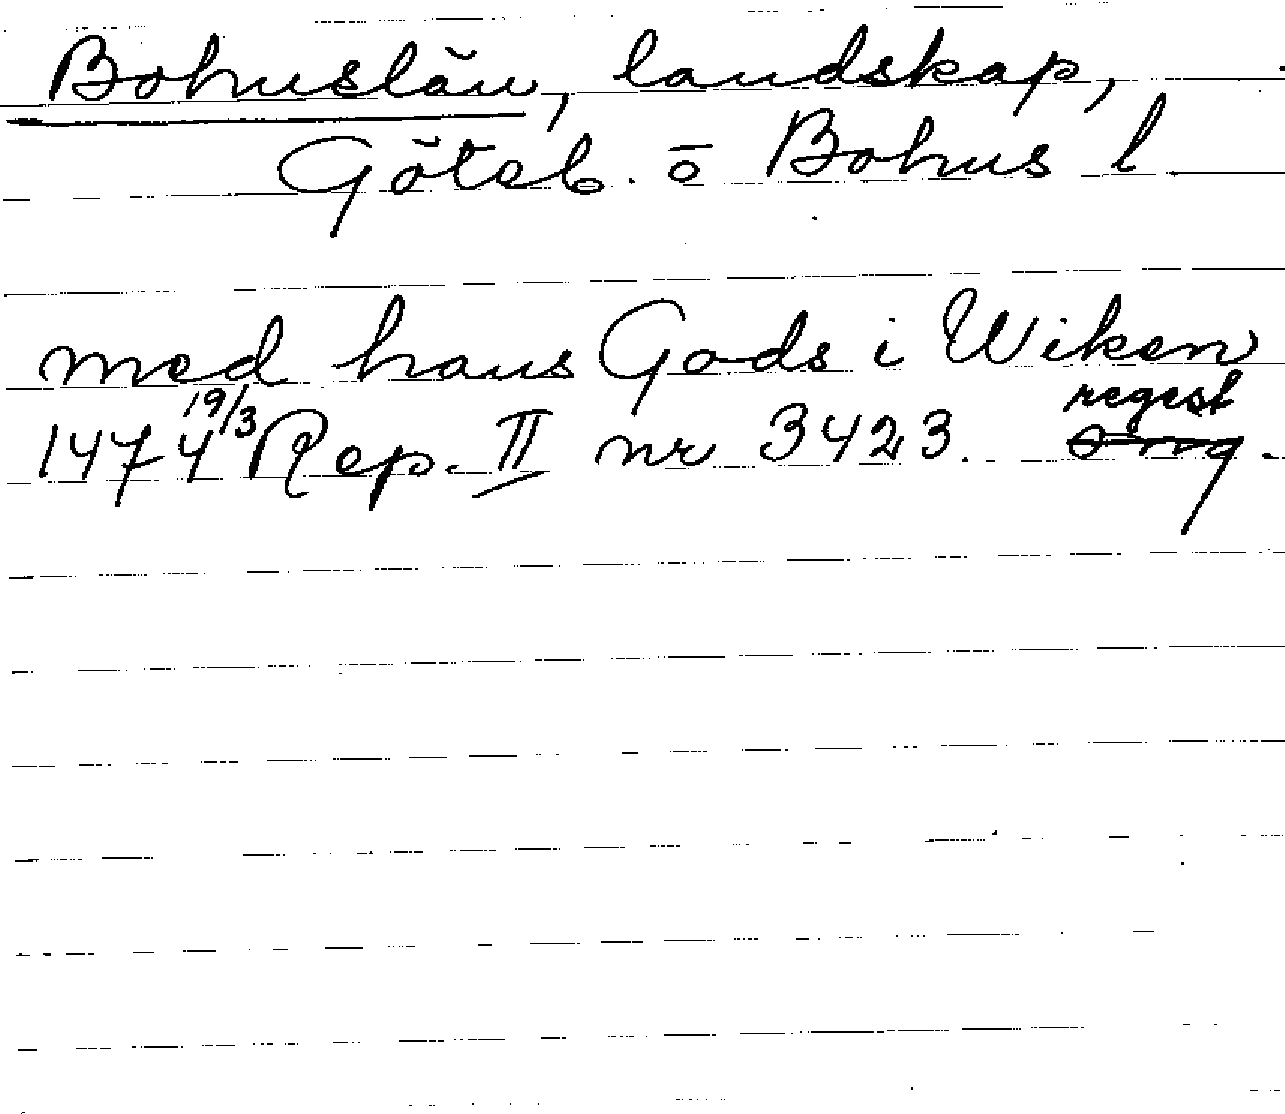 Bohuslän, landskap,
Göteb. o Bohus l
med hans Gods i Wiken
1474 19/3 Rep. II nr 3423. regest
orig.